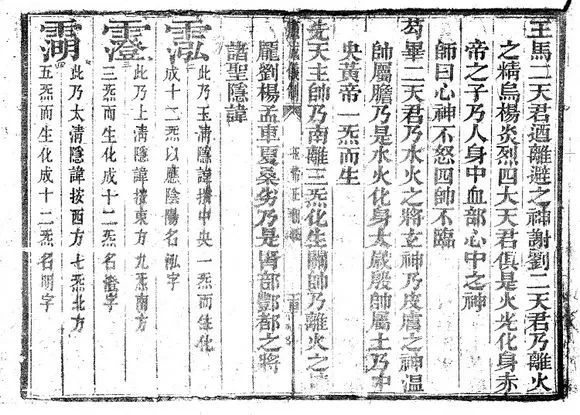 王馬二天君迺離之神謝劉二天君乃離火
之精烏楊炎烈四大天君俱是火光化身赤
帝之子乃人身中血部心中之神
師曰心神不怒四帥不臨
苟畢二天君乃水火之將玄神乃皮膚之神溫
帥屬膽乃是水火化身太歲殷帥屬土乃中
央黃帝一炁而生
先天主帥乃南離三炁化生關帥乃離火之
龐劉楊孟車夏桑劣乃是胃部酆都之將
諸聖隱諱
此乃玉清隱諱按中央一炁而化
成十二炁以應陰陽名泓字
此乃上清隱諱按東方九炁南方
三炁而生化成十二炁名澄字
此乃太清隱諱按西方七炁北方
五炁而生化成十二炁名明字